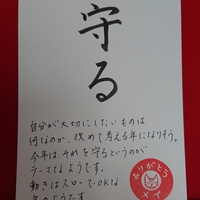 守る
自分が大切にしたいものは
何なのか、改めて考える年になりそう。
今年は、それを守るというのが
テーマなようです。
動きはスローでOKな
年のようです
ありがとう